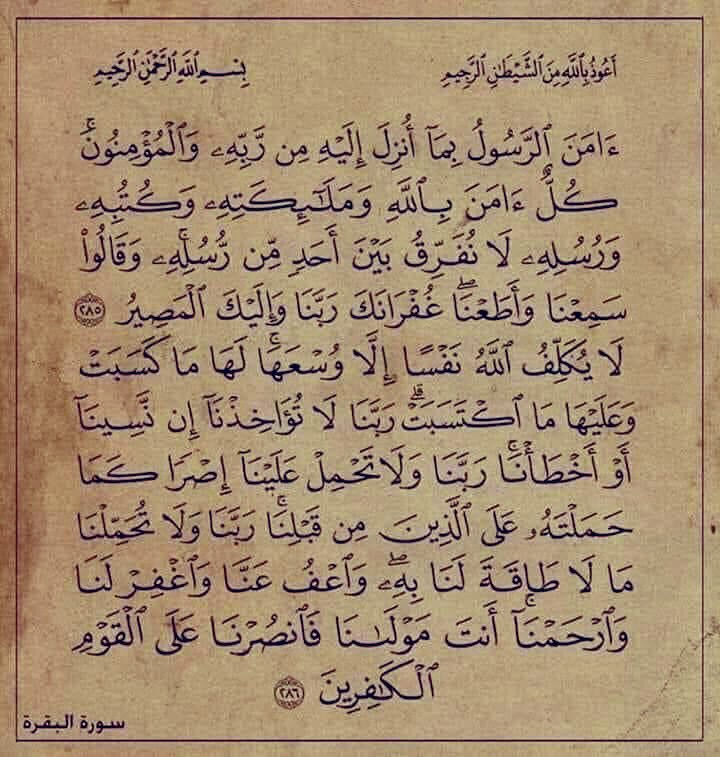 أَعُوذُ بِٱللَّهِ مِنَ ٱلشَّيْطَٰنِ ٱلرَّجِيمِ
بِسْمِ ٱللَّهِ ٱلرَّحْمَٰنِ ٱلرَّحِيمِ
ءَامَنَ ٱلرَّسُولُ بِمَآ أُنزِلَ إِلَيْهِ مِن رَّبِّهِۦ وَٱلْمُؤْمِنُونَۚ
كُلٌّ ءَامَنَ بِٱللَّهِ وَمَلَٰٓئِكَتِهِۦ وَكُتُبِهِۦ
وَرُسُلِهِۦ لَا نُفَرِّقُ بَيْنَ أَحَدٍ مِّن رُّسُلِهِۦۚ وَقَالُوا۟
سَمِعْنَا وَأَطَعْنَاۖ غُفْرَانَكَ رَبَّنَا وَإِلَيْكَ ٱلْمَصِيرُ ٢٨٥
لَا يُكَلِّفُ ٱللَّهُ نَفْسًا إِلَّا وُسْعَهَاۚ لَهَا مَا كَسَبَتْ
وَعَلَيْهَا مَا ٱكْتَسَبَتْۗ رَبَّنَا لَا تُؤَاخِذْنَآ إِن نَّسِينَآ
أَوْ أَخْطَأْنَاۚ رَبَّنَا وَلَا تَحْمِلْ عَلَيْنَآ إِصْرًا كَمَا
حَمَلْتَهُۥ عَلَى ٱلَّذِينَ مِن قَبْلِنَاۚ رَبَّنَا وَلَا تُحَمِّلْنَا
مَا لَا طَاقَةَ لَنَا بِهِۦۖ وَٱعْفُ عَنَّا وَٱغْفِرْ لَنَا
وَٱرْحَمْنَآۚ أَنتَ مَوْلَىٰنَا فَٱنصُرْنَا عَلَى ٱلْقَوْمِ
ٱلْكَٰفِرِينَ ٢٨٦
سورة البقرة